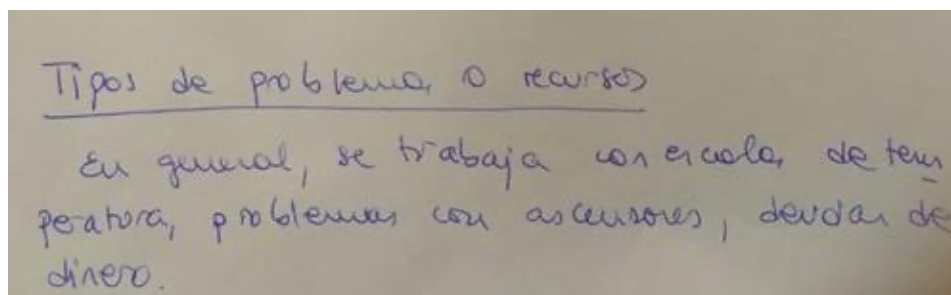 Tipos de problema o recursos
En general, se trabaja con escala de tem
peratura, problemas con ascensores, deudas de
dinero.